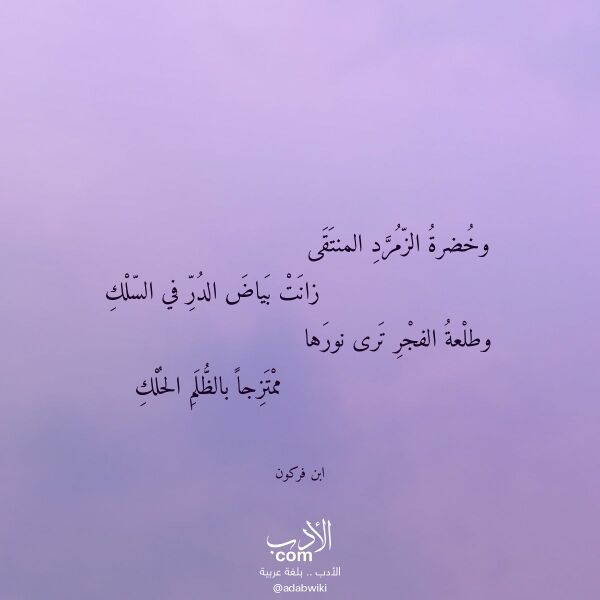 وخُضرةُ الزّمُرَّدِ المنتَقَى
زانَتْ بَياضَ الدُرِّ في السّلْكِ
وطلْعةُ الفجْرِ تَرى نورَها
ممْتَزِجاً بالظُّلَمِ الحُلْكِ
ابن فركون
الأدب
com
الأدب .. بلغة عربية
@adabwiki